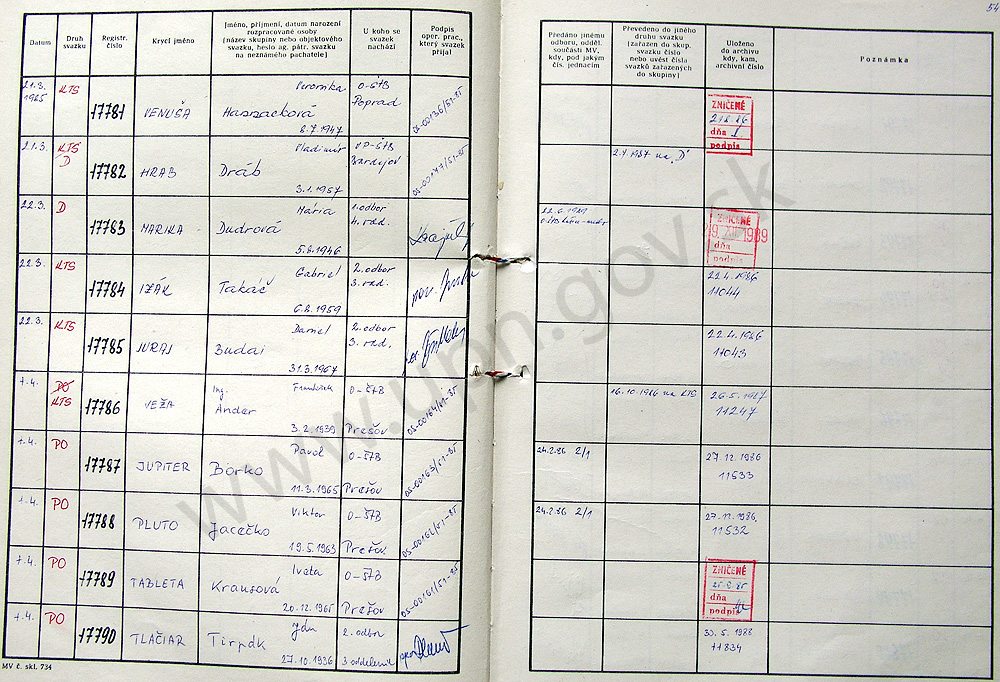 54
Datum
Druh svazku
Registr. číslo
Krycí jméno
Jméno, příjmení, datum narození rozpracované osoby (název skupiny nebo objektového svazku, heslo ag. pátr. svazku na neznámého pachatele)
U koho se svazek nachází
Podpis oper. prac., který svazek přijal
Předáno jinému odboru, odděl. součásti MV, kdy, pod jakým čís. jednacím
Převedeno do jiného druhu svazku (zařazen do skup. svazku číslo nebo uvést čísla svazků zařazených do skupiny)
Uloženo do archivu kdy, kam, archivní číslo
Poznámka
21.3. 1985 KTS 17781 VENUŠA Veronika 8.7.1947 O-ŠTB Poprad ZNIČENÉ dňa podpis
21.3. KTS D 17782 HRAB Vladimír Dráb 3.1.1957 VP-ŠTB Bardejov 2.4.1987 na „D"
22.3. D 17783 MARIKA Mária Dudrová 5.8.1946 1. odbor 4. odd. ZNIČENÉ 19. XII. 1989 dňa podpis
22.3. KTS 17784 IŽÁK Gabriel Takáč 6.8.1959 2. odbor 3. odd. 22.4.1986 11044
22.3. KTS 17785 JURAJ Daniel Budai 31.3.1957 2. odbor 3. odd. 22.4.1986 11043
1.4. DO KTS 17786 VEŽA Ing. František Ander 3.2.1939 O-ŠTB Prešov OS-00164/51-85 16.10.1986 na KTS 26.5.1987 11247
1.4. PO 17787 JUPITER Pavol Borko 11.3.1965 O-ŠTB Prešov OS-00163/51-85 24.2.86 2/1 27.12.1986 11533
1.4. PO 17788 PLUTO Viktor Jacečko 19.5.1963 O-ŠTB Prešov OS-00162/51-85 24.2.86 2/1 27.12.1986 11532
1.4. PO 17789 TABLETA Iveta Krausová 20.12.1965 O-ŠTB Prešov OS-00161/51-85 ZNIČENÉ dňa podpis
1.4. PO 17790 TLAČIAR Ján Tirpák 27.10.1936 2. odbor 3 oddelenie 30.5.1988 11834
MV č. skl. 734
www.upn.gov.sk